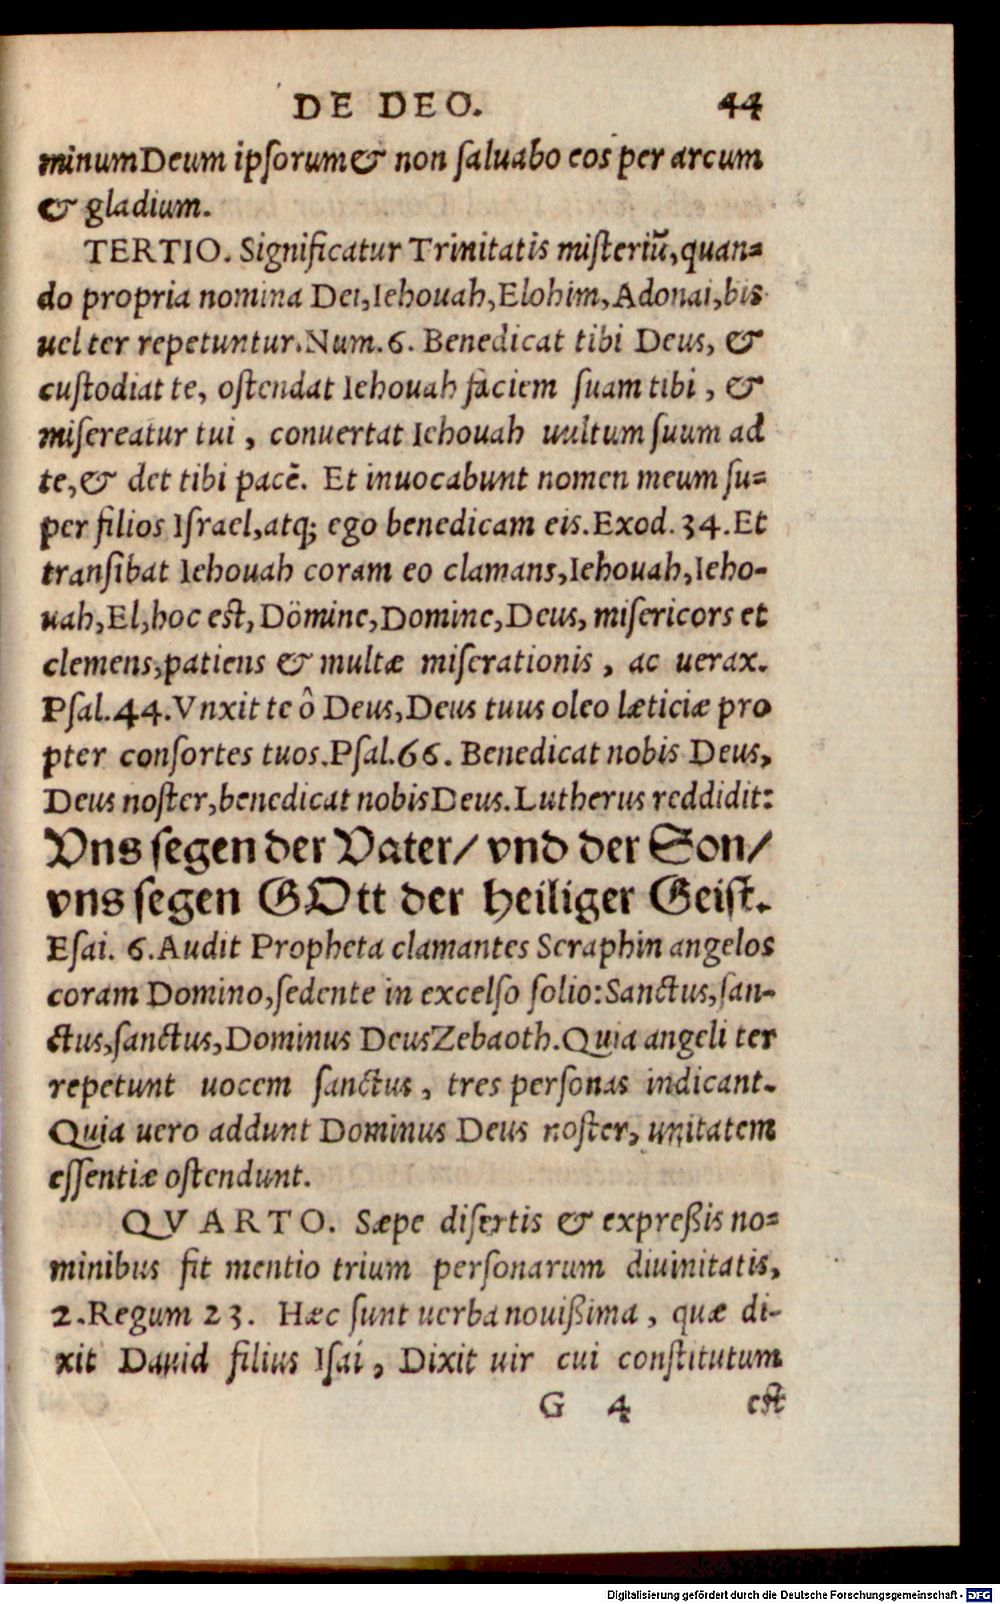 DE DEO. 44
minum Deum ipsorum & non saluabo eos per arcum
& gladium.
TERTIO. Significatur Trinitatis misteriũ, quan=
do propria nomina Dei, Iehouah, Elohim, Adonai, bis
uel ter repetuntur. Num. 6. Benedicat tibi Deus, &
custodiat te, ostendat Iehouah faciem suam tibi, &
misereatur tui, conuertat Iehouah uultum suum ad
te, & det tibi pacẽ. Et inuocabunt nomen meum su=
per filios Israel, atq; ego benedicam eis. Exod. 34. Et
transibat Iehouah coram eo clamans, Iehouah, Ieho-
uah, El, hoc est, Domine, Domine, Deus, misericors et
clemens, patiens & multæ miserationis, ac uerax.
Psal. 44. Vnxit te ô Deus, Deus tuus oleo læticiæ pro
pter consortes tuos. Psal. 66. Benedicat nobis Deus,
Deus noster, benedicat nobis Deus. Lutherus reddidit:
Vns segen der Vater/ vnd der Son/
vns segen GOtt der heiliger Geist.
Esai. 6. Audit Propheta clamantes Seraphin angelos
coram Domino, sedente in excelso solio: Sanctus, san-
ctus, sanctus, Dominus Deus Zebaoth. Quia angeli ter
repetunt uocem sanctus, tres personas indicant.
Quia uero addunt Dominus Deus noster, unitatem
essentiæ ostendunt.
QVARTO. Sæpe disertis & expreßis no=
minibus fit mentio trium personarum diuinitatis,
2. Regum 23. Hæc sunt uerba nouißima, quæ di-
xit Dauid filius Isai, Dixit uir cui constitutum
G 4 est
Digitalisierung gefördert durch die Deutsche Forschungsgemeinschaft - DFG